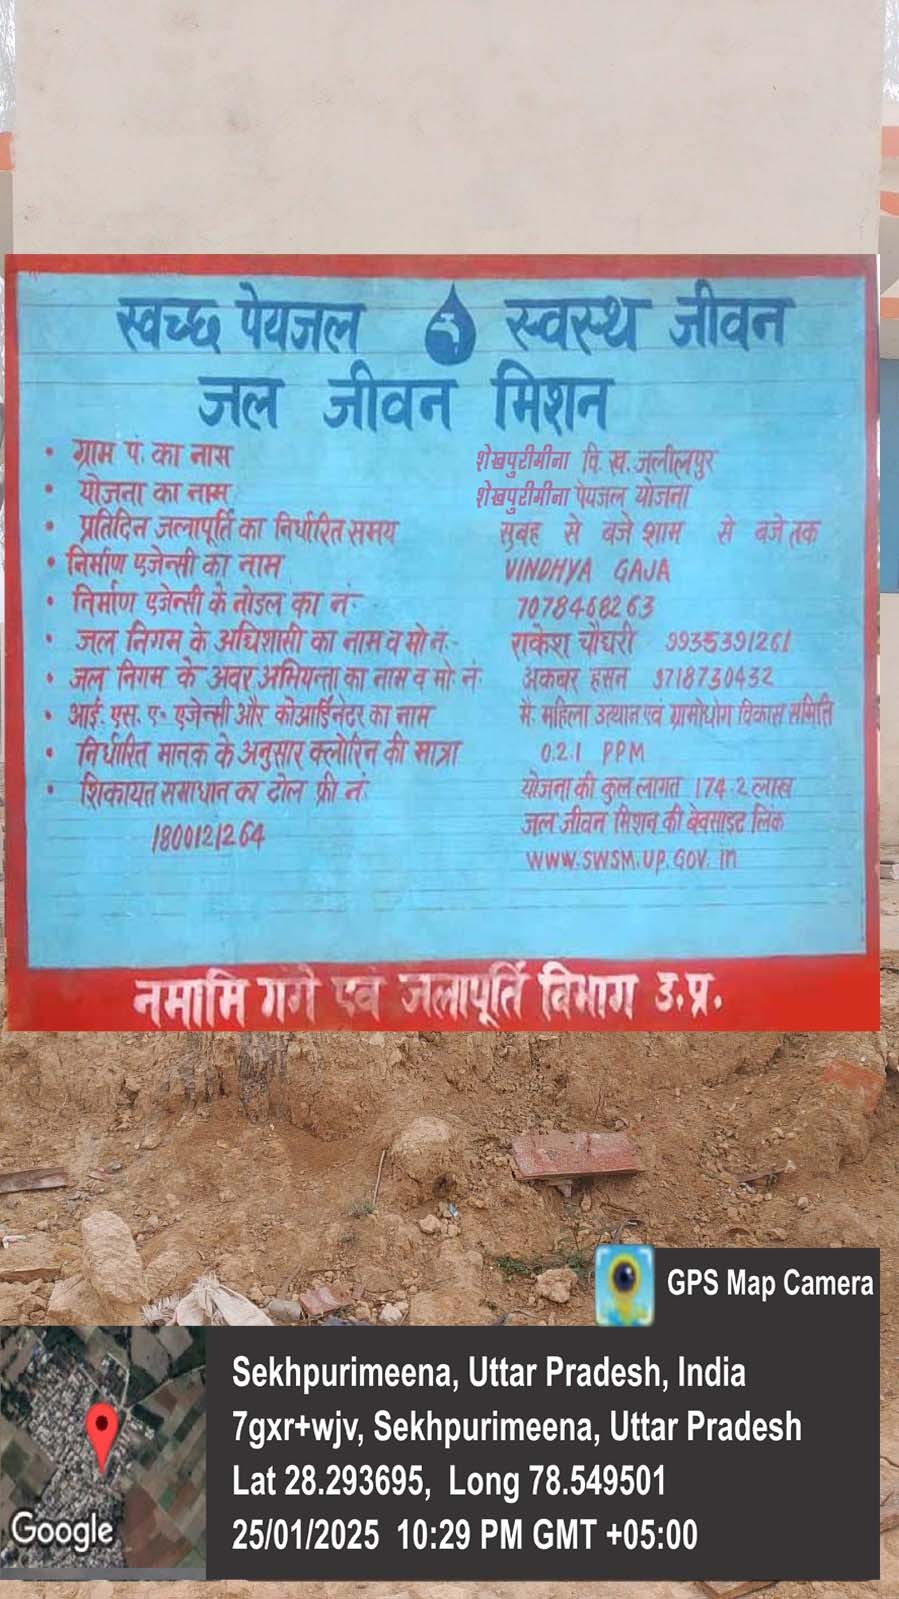 स्वच्छ पेयजल स्वस्थ जीवन
जल जीवन मिशन
• ग्राम पं. का नाम शेखपुरीमीना वि. ख. जलीलपुर
• योजना का नाम शेखपुरीमीना पेयजल योजना
• प्रतिदिन जलापूर्ति का निर्धारित समय सुबह से बजे शाम से बजे तक
• निर्माण एजेन्सी का नाम VINDHYA GAJA
• निर्माण एजेन्सी के नोडल का नं:- 7078468263
• जल निगम के अधिशासी का नाम व मो नं:- राकेश चौधरी 9935391261
• जल निगम के अवर अभियन्ता का नाम व मो. नं. अकबर हसन 9718730432
• आई. एस. ए. एजेन्सी और कोआर्डिनेटर का नाम मै. महिला उत्थान एवं ग्रामोधोग विकास समिति
• निर्धारित मानक के अनुसार क्लोरिन की मात्रा 0.2.1 PPM
• शिकायत समाधान का टोल फ्री नं: योजना की कुल लागत 174.2 लाख
1800121264 जल जीवन मिशन की बेवसाइट लिंक
WWW.SWSM.UP.GOV.in
नमामि गंगे एवं जलापूर्ति विभाग उ.प्र.
GPS Map Camera
Sekhpurimeena, Uttar Pradesh, India
7gxr+wjv, Sekhpurimeena, Uttar Pradesh
Lat 28.293695, Long 78.549501
25/01/2025 10:29 PM GMT +05:00
Google